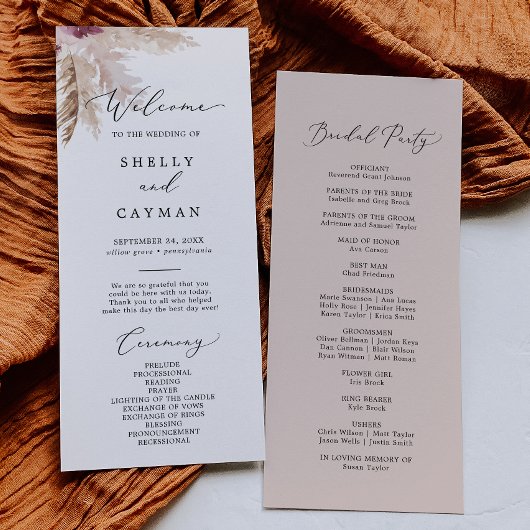 Welcome
TO THE WEDDING OF
SHELLY
and
CAYMAN
SEPTEMBER 24, 20XX
willow grove • pennsylvania
We are so grateful that you
could be here with us today.
Thank you to all who helped
make this day the best day ever!
Ceremony
PRELUDE
PROCESSIONAL
READING
PRAYER
LIGHTING OF THE CANDLE
EXCHANGE OF VOWS
EXCHANGE OF RINGS
BLESSING
PRONOUNCEMENT
RECESSIONAL
Bridal Party
OFFICIANT
Reverend Grant Johnson
PARENTS OF THE BRIDE
Isabelle and Greg Brock
PARENTS OF THE GROOM
Adrienne and Samuel Taylor
MAID OF HONOR
Ava Carson
BEST MAN
Chad Friedman
BRIDESMAIDS
Marie Swanson | Ana Lucas
Holly Rose | Jennifer Hayes
Karen Taylor | Erica Smith
GROOMSMEN
Oliver Bollman | Jordan Keya
Dan Cannon | Blair Wilson
Ryan Witmen | Matt Roman
FLOWER GIRL
Iris Brock
RING BEARER
Kyle Brock
USHERS
Chris Wilson | Matt Taylor
Jason Wells | Justin Smith
IN LOVING MEMORY OF
Susan Taylor